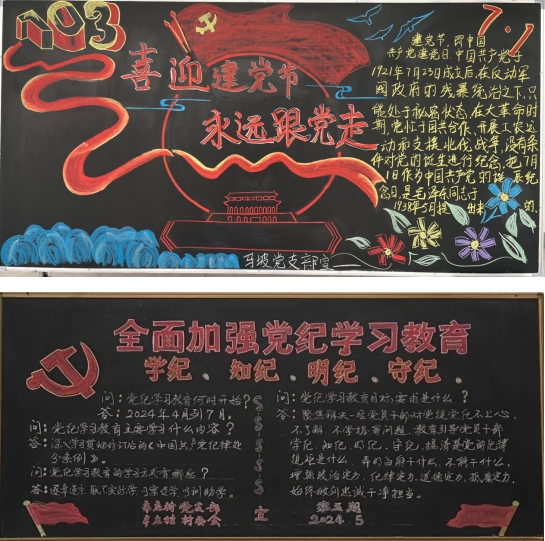 103
7.1
喜迎建党节
永远跟党走
建党节，即中国
共产党建党日，中国共产党于
1921年7月23日成立后，在反动军
阀政府的残暴统治之下，只
能处于秘密状态，在大革命时
期，党忙于国共合作、开展工农运
动和支援北伐战争，没有条
件对党的诞生进行纪念，把7月
1日作为中国共产党的诞辰纪
念日，是毛泽东同志于
1938年5月提出来的。
马坡党支部宣
全面加强党纪学习教育
学纪、知纪、明纪、守纪
问：党纪学习教育何时开始？
答：2024年4月到7月。
问：党纪学习教育主要学习什么内容？
答：深入学习贯彻修订后的《中国共产党纪律处
分条例》。
问：党纪学习教育的学习方式有哪些？
答：逐章逐条、联系实际学习
问：党纪学习教育目标要求是什么？
答：聚焦解决一些党员干部对党规党纪不上心、
不了解、不掌握等问题，教育引导党员干部
学纪、知纪、明纪、守纪，搞清楚党的纪律
规矩是什么，弄明白能干什么、不能干什么，
增强政治定力、纪律定力、道德定力、抵腐定力，
始终做到忠诚干净担当。
村党支部
村委会
宣
第五期
2024.5